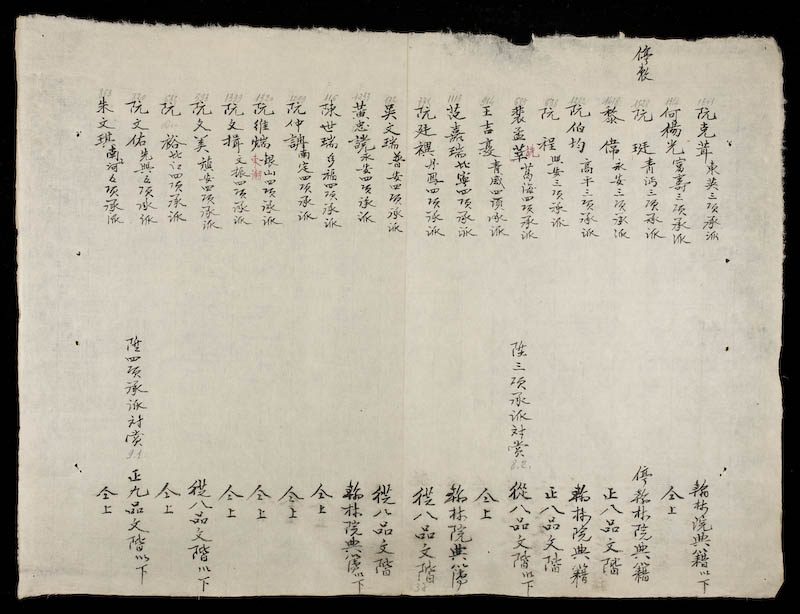 阮克茸 三項承派 翰林院典籍以下
何楊光 富壽三項承派 仝上
停 阮珽 青沔三項承派 停翰林院典籍
黎偉 永安三項承派 正八品文階
阮伯均 高平三項承派 翰林院典籍
阮程 興安三項承派 正八品文階
裴孟萃 萬海四項承派 陞三項承派对賞 8.2. 從八品文階以下
王吉 青威四項承派 仝上
范嘉瑞 北寧四項承派 翰林院典簿
阮廷 丹鳳四項承派 從八品文階
吳文瑞 普安四項承派 從八品文階
黃忠讜 永安四項承派 翰林院典簿以下
陳世瑞 多福四項承派 仝上
阮仲調 南定四項承派 仝上
阮維 銀山四項承派 東潮 仝上
阮文揖 文振四項承派 仝上
阮文美 鎮安四項承派 從八品文階以下
阮裕 北江四項承派 仝上
阮文佑 先興五項承派 陞四項承派对賞 9.1 正九品文階以下
朱文琪 南河五項承派 仝上